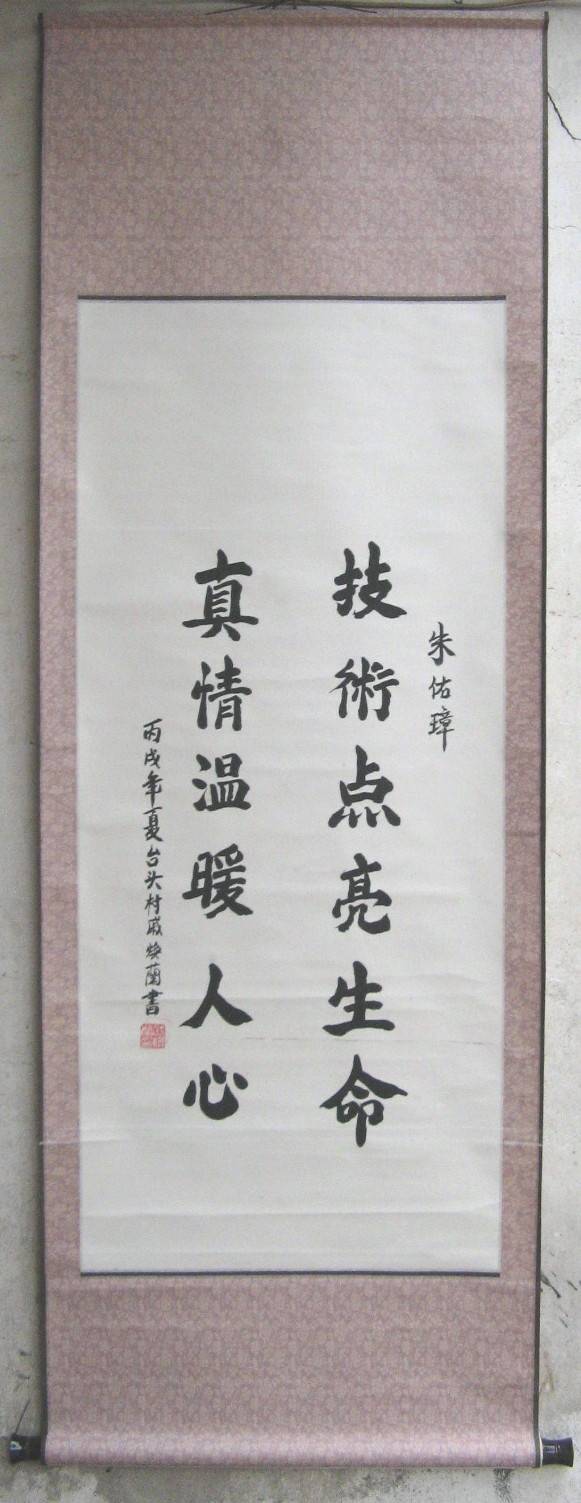 朱佑璋
技術点亮生命
真情温暖人心
丙戌年夏台头村戚焕蘭書